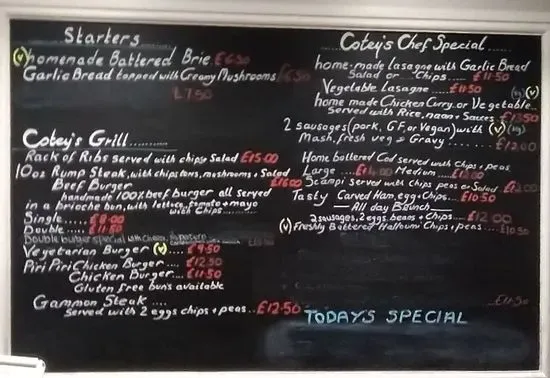 Starters
(V) homemade Battered Brie £6.50
Garlic Bread topped with Creamy Mushrooms
£7.50
Cotey's Grill
Rack of Ribs served with chips & Salad £15.00
10oz Rump Steak, with chips, toms, mushrooms & Salad
£16.00
Beef Burger
handmade 100% beef burger all served
in a brioche bun, with lettuce, tomato & mayo
with Chips
Single £8.00
Double £11.50
Double burger special with Cheese
Vegetarian Burger (V) £9.50
Piri Piri Chicken Burger £12.50
Chicken Burger £11.50
Gluten free buns available
Gammon Steak
served with 2 eggs chips & peas £12.50
Cotey's Chef Special
home-made lasagne with Garlic Bread
Salad or Chips £11.50
Vegetable Lasagne £11.50 (V)
home made Chicken Curry or Vegetable
served with Rice, naan & Sauces £13.50
2 sausages (pork, GF, or Vegan) with (V) (Vg)
Mash, fresh veg & Gravy £12.00
Home battered Cod served with Chips & peas
Large £14.00 Medium £12.00
Scampi served with Chips peas or Salad £12.00
Tasty Carved Ham, egg & Chips £10.50
All day Brunch
2 sausages, 2 eggs, beans & Chips £12.00
(V) Freshly Battered Halloumi Chips & peas £10.50
£11.50
TODAYS SPECIAL